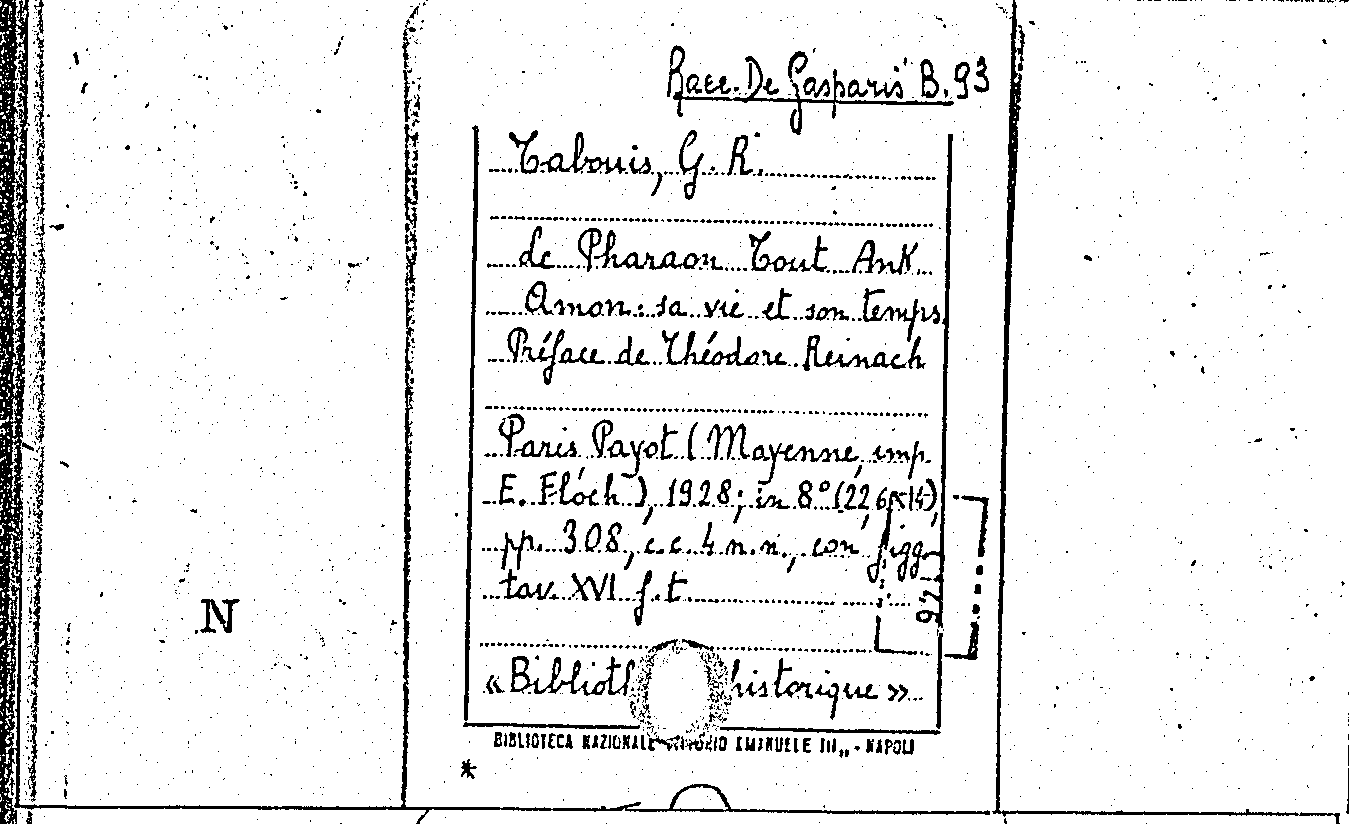 Racc. De Gasparis B. 93
Tabouis, G. R.
Le Pharaon Tout Ank
Amon: sa vie et son temps.
Préface de Théodore Reinach
Paris Payot (Mayenne, imp.
E. Floch), 1928; in 8° (22,6x14),
pp. 308, c.c. 4 n.n., con figg.
tav. XVI f. t.
« historique »
N
BIBLIOTECA NAZIONALE EMANUELE III„ - NAPOLI
*